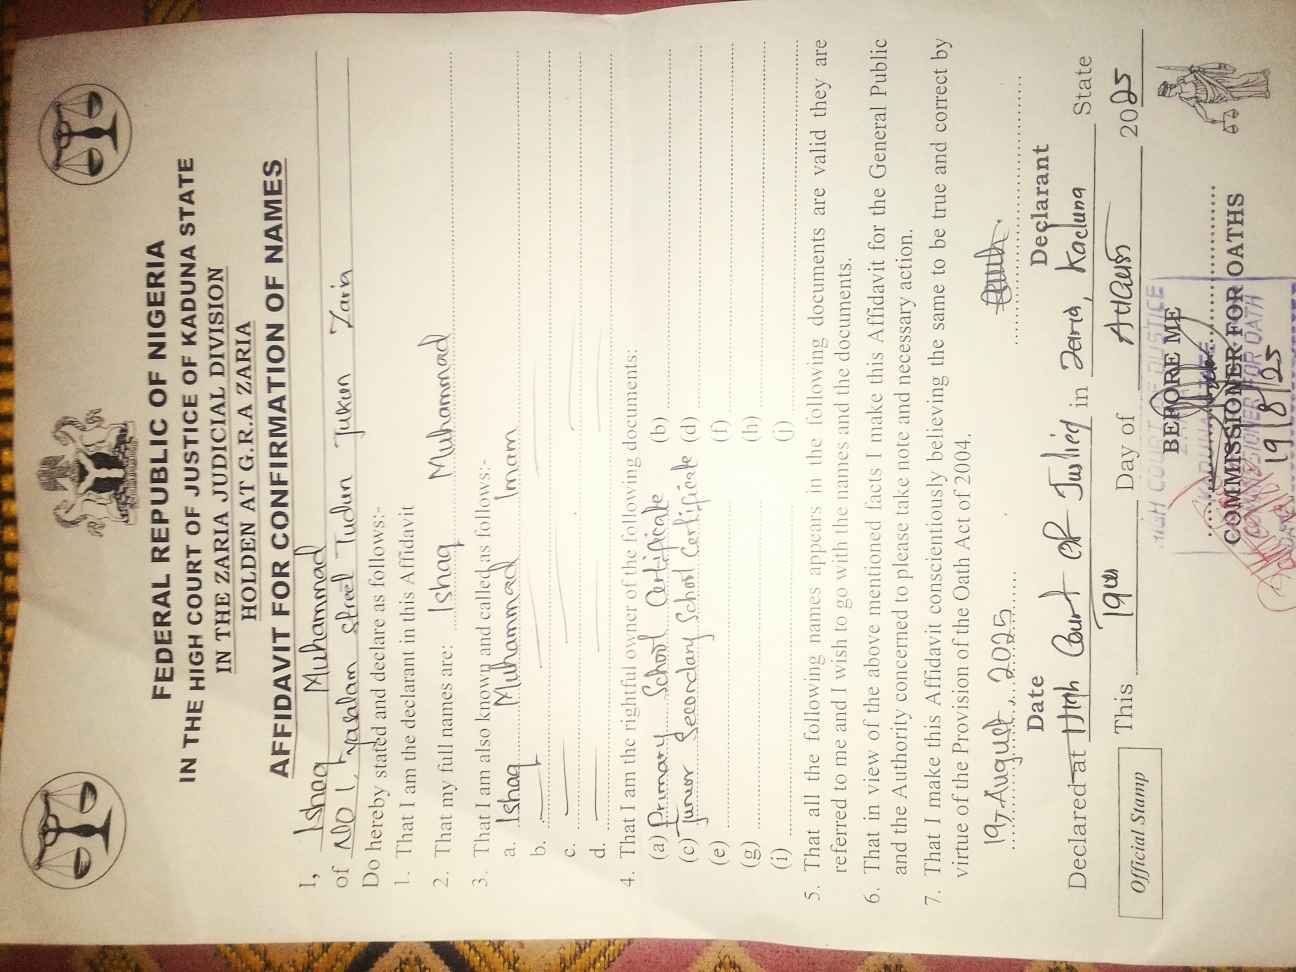 FEDERAL REPUBLIC OF NIGERIA
IN THE HIGH COURT OF JUSTICE OF KADUNA STATE
IN THE ZARIA JUDICIAL DIVISION
HOLDEN AT G.R.A ZARIA
AFFIDAVIT FOR CONFIRMATION OF NAMES
I, Ishaq Muhammad
of NO 1, street Tudun Jukun Zaria
Do hereby stated and declare as follows:-
1. That I am the declarant in this Affidavit
2. That my full names are: Ishaq Muhammad
3. That I am also known and called as follows:-
a. Ishaq Muhammad Imam
b.
c.
d.
4. That I am the rightful owner of the following documents:
(a) Primary School Certificate (b)
(c) Junior Secondary School Certificate (d)
(e) (f)
(g) (h)
(i) (j)
5. That all the following names appears in the following documents are valid they are
referred to me and I wish to go with the names and the documents.
6. That in view of the above mentioned facts I make this Affidavit for the General Public
and the Authority concerned to please take note and necessary action.
7. That I make this Affidavit conscientiously believing the same to be true and correct by
virtue of the Provision of the Oath Act of 2004.
19, August, 2025
Date Declarant
Declared at High Court of Justice in Zaria, Kaduna State
This 19th Day of August 2025
Official Stamp
BEFORE ME
HIGH COURT OF JUSTICE
COMMISSIONER FOR OATHS
COMMISSIONER FOR OATH
19/8/25